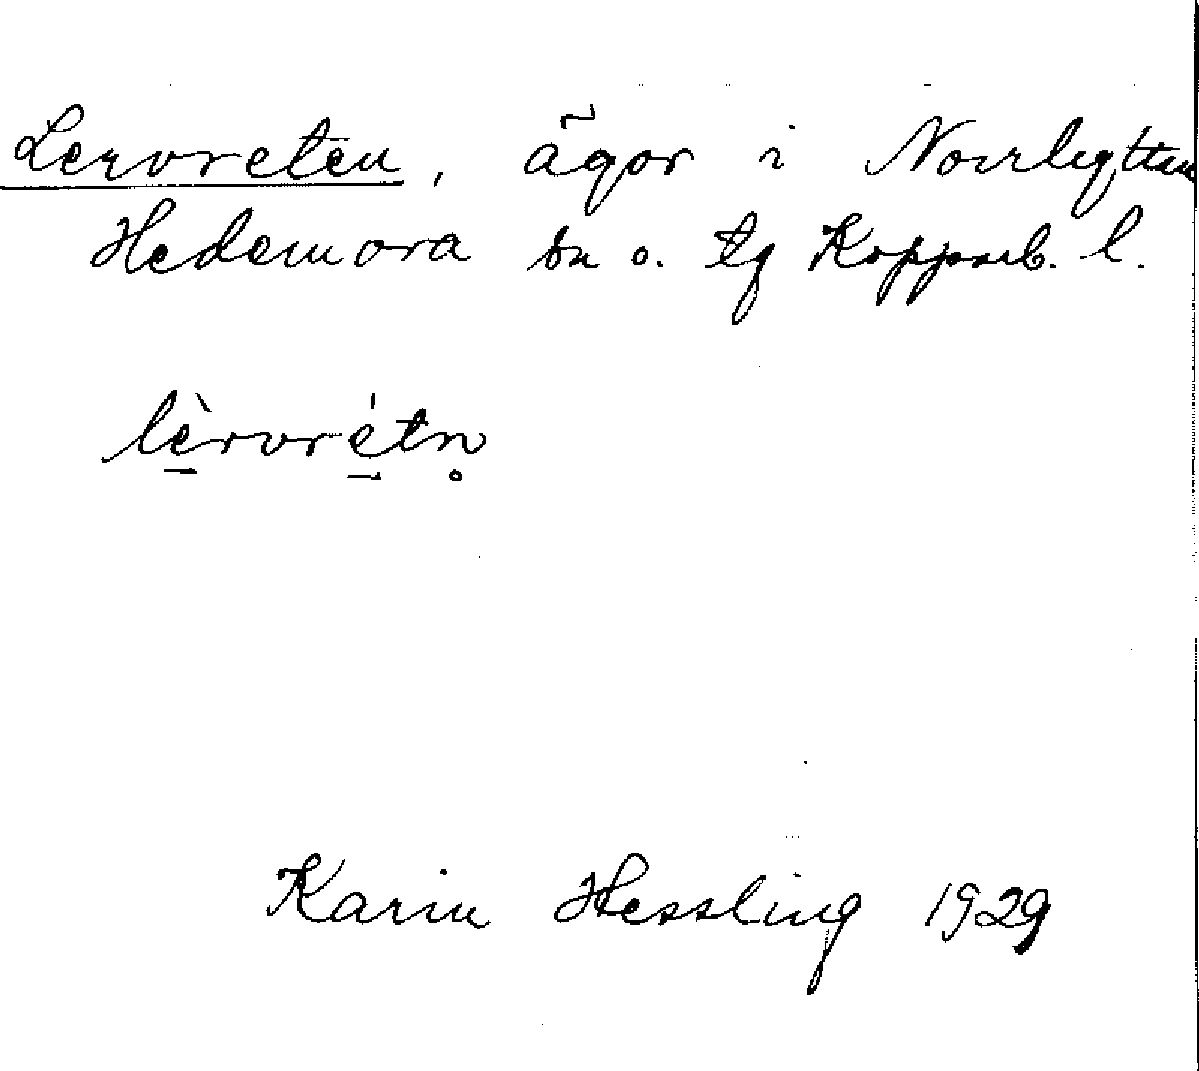 Lervreten, ägor i Norrhyttan
Hedemora sn o. tg Kopparb. l.
lèrvrétn̥
Karin Hessling 1929